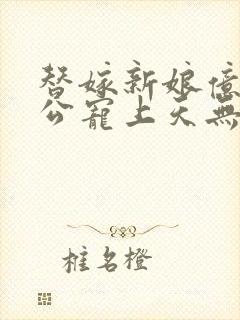 替嫁新娘億
公寵上天無
椎名橙